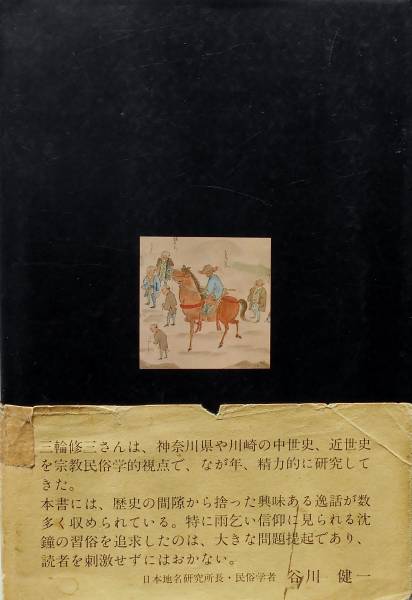 三輪修三さんは、神奈川県や川崎の中世史、近世史
を宗教民俗学的視点で、なが年、精力的に研究して
きた。
本書には、歴史の間隙から捨った興味ある逸話が数
多く収められている。特に雨乞い信仰に見られる沈
鐘の習俗を追求したのは、大きな問題提起であり、
読者を刺激せずにはおかない。
日本地名研究所長・民俗学者 谷川 健一